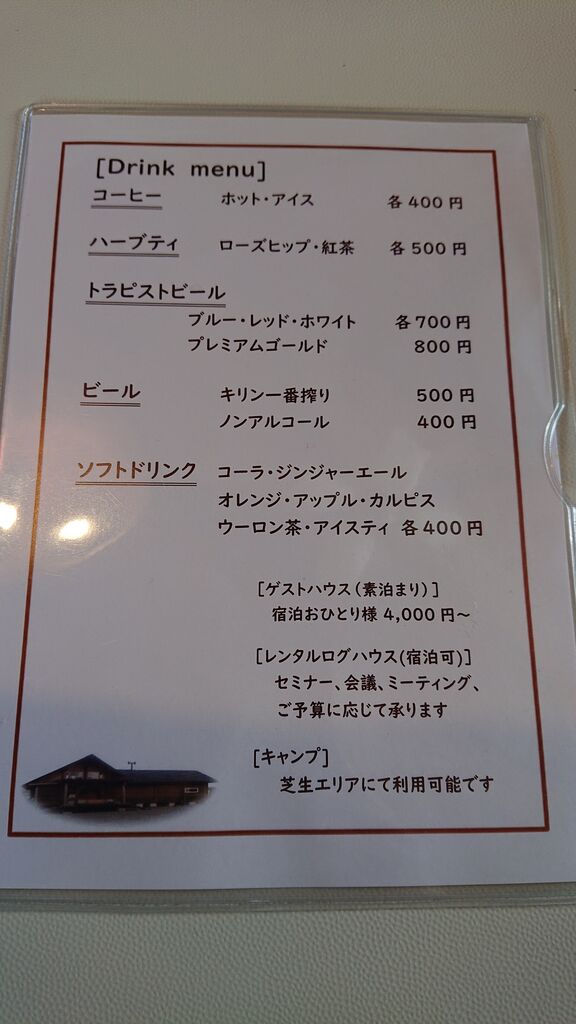 [Drink menu]
コーヒー ホット・アイス 各400円
ハーブティ ローズヒップ・紅茶 各500円
トラピストビール
ブルー・レッド・ホワイト 各700円
プレミアムゴールド 800円
ビール キリン一番搾り 500円
ノンアルコール 400円
ソフトドリンク コーラ・ジンジャーエール
オレンジ・アップル・カルピス
ウーロン茶・アイスティ 各400円
[ゲストハウス(素泊まり)]
宿泊おひとり様 4,000円~
[レンタルログハウス(宿泊可)]
セミナー、会議、ミーティング、
ご予算に応じて承ります
[キャンプ]
芝生エリアにて利用可能です